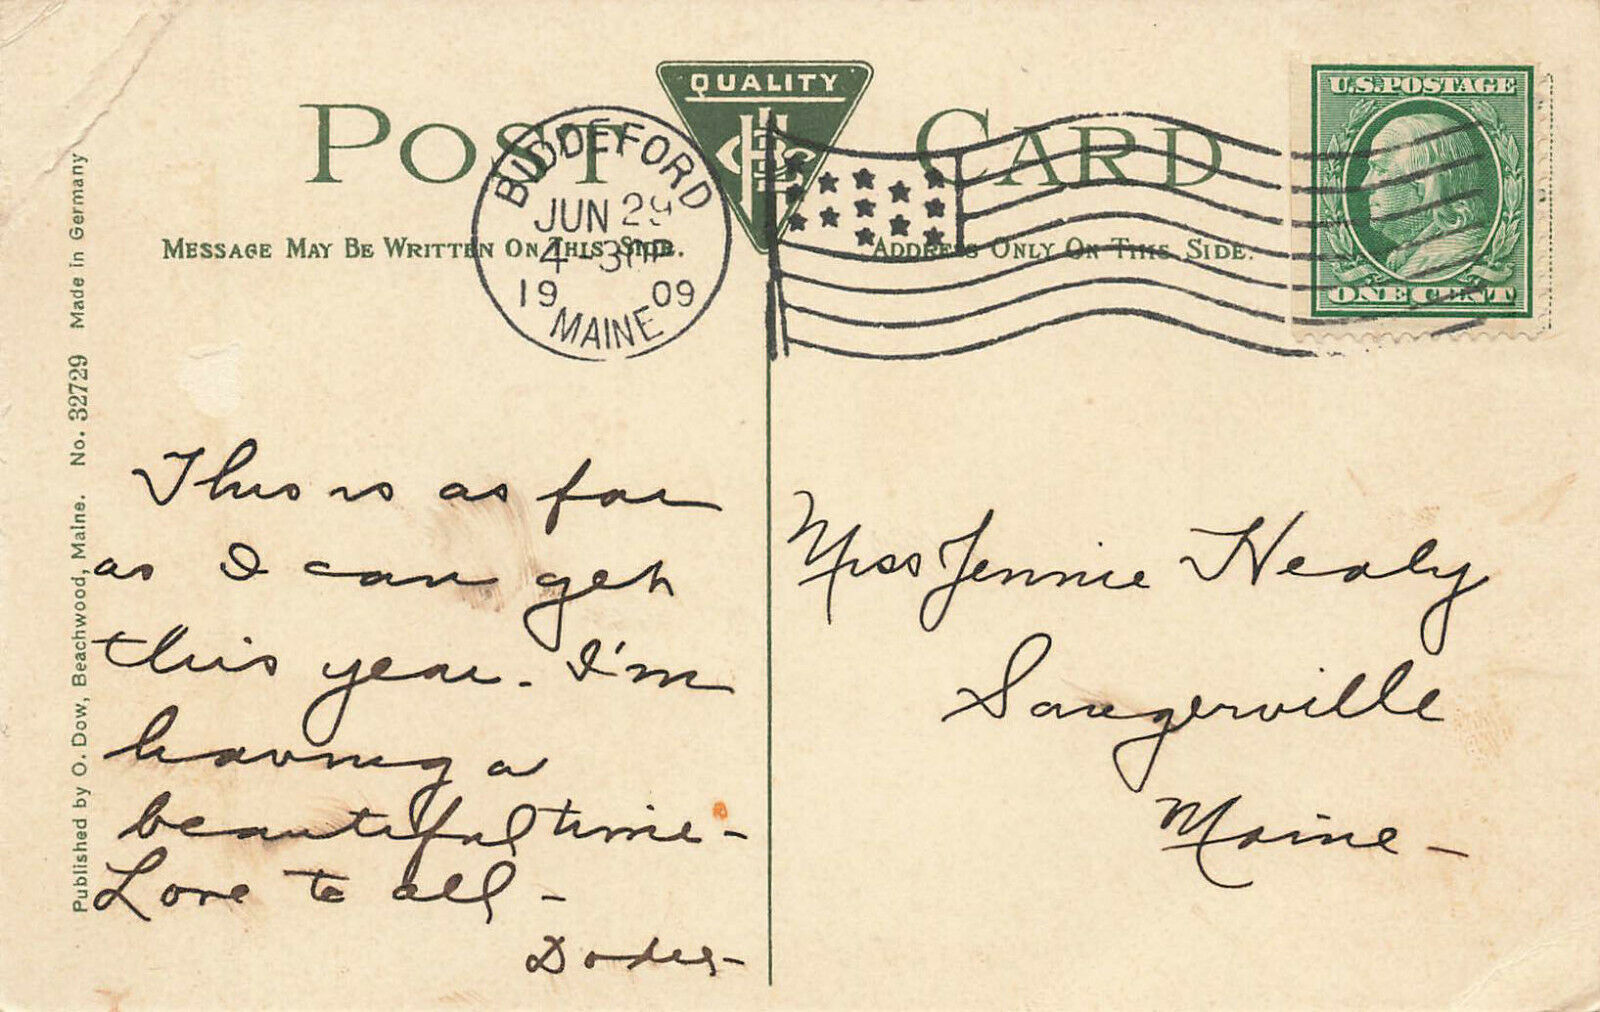 POST CARD
QUALITY
U.S. POSTAGE
ONE CENT
BIDDEFORD
JUN 29
4-30P
1909
MAINE
MESSAGE MAY BE WRITTEN ON THIS SIDE.
ADDRESS ONLY ON THIS SIDE.
Published by O. Dow, Beachwood, Maine. No. 32729 Made in Germany
This is as far
as I can get
this year. I'm
having a
beautiful time -
Love to all -
Miss Jennie Healy
Sangerville
Maine -